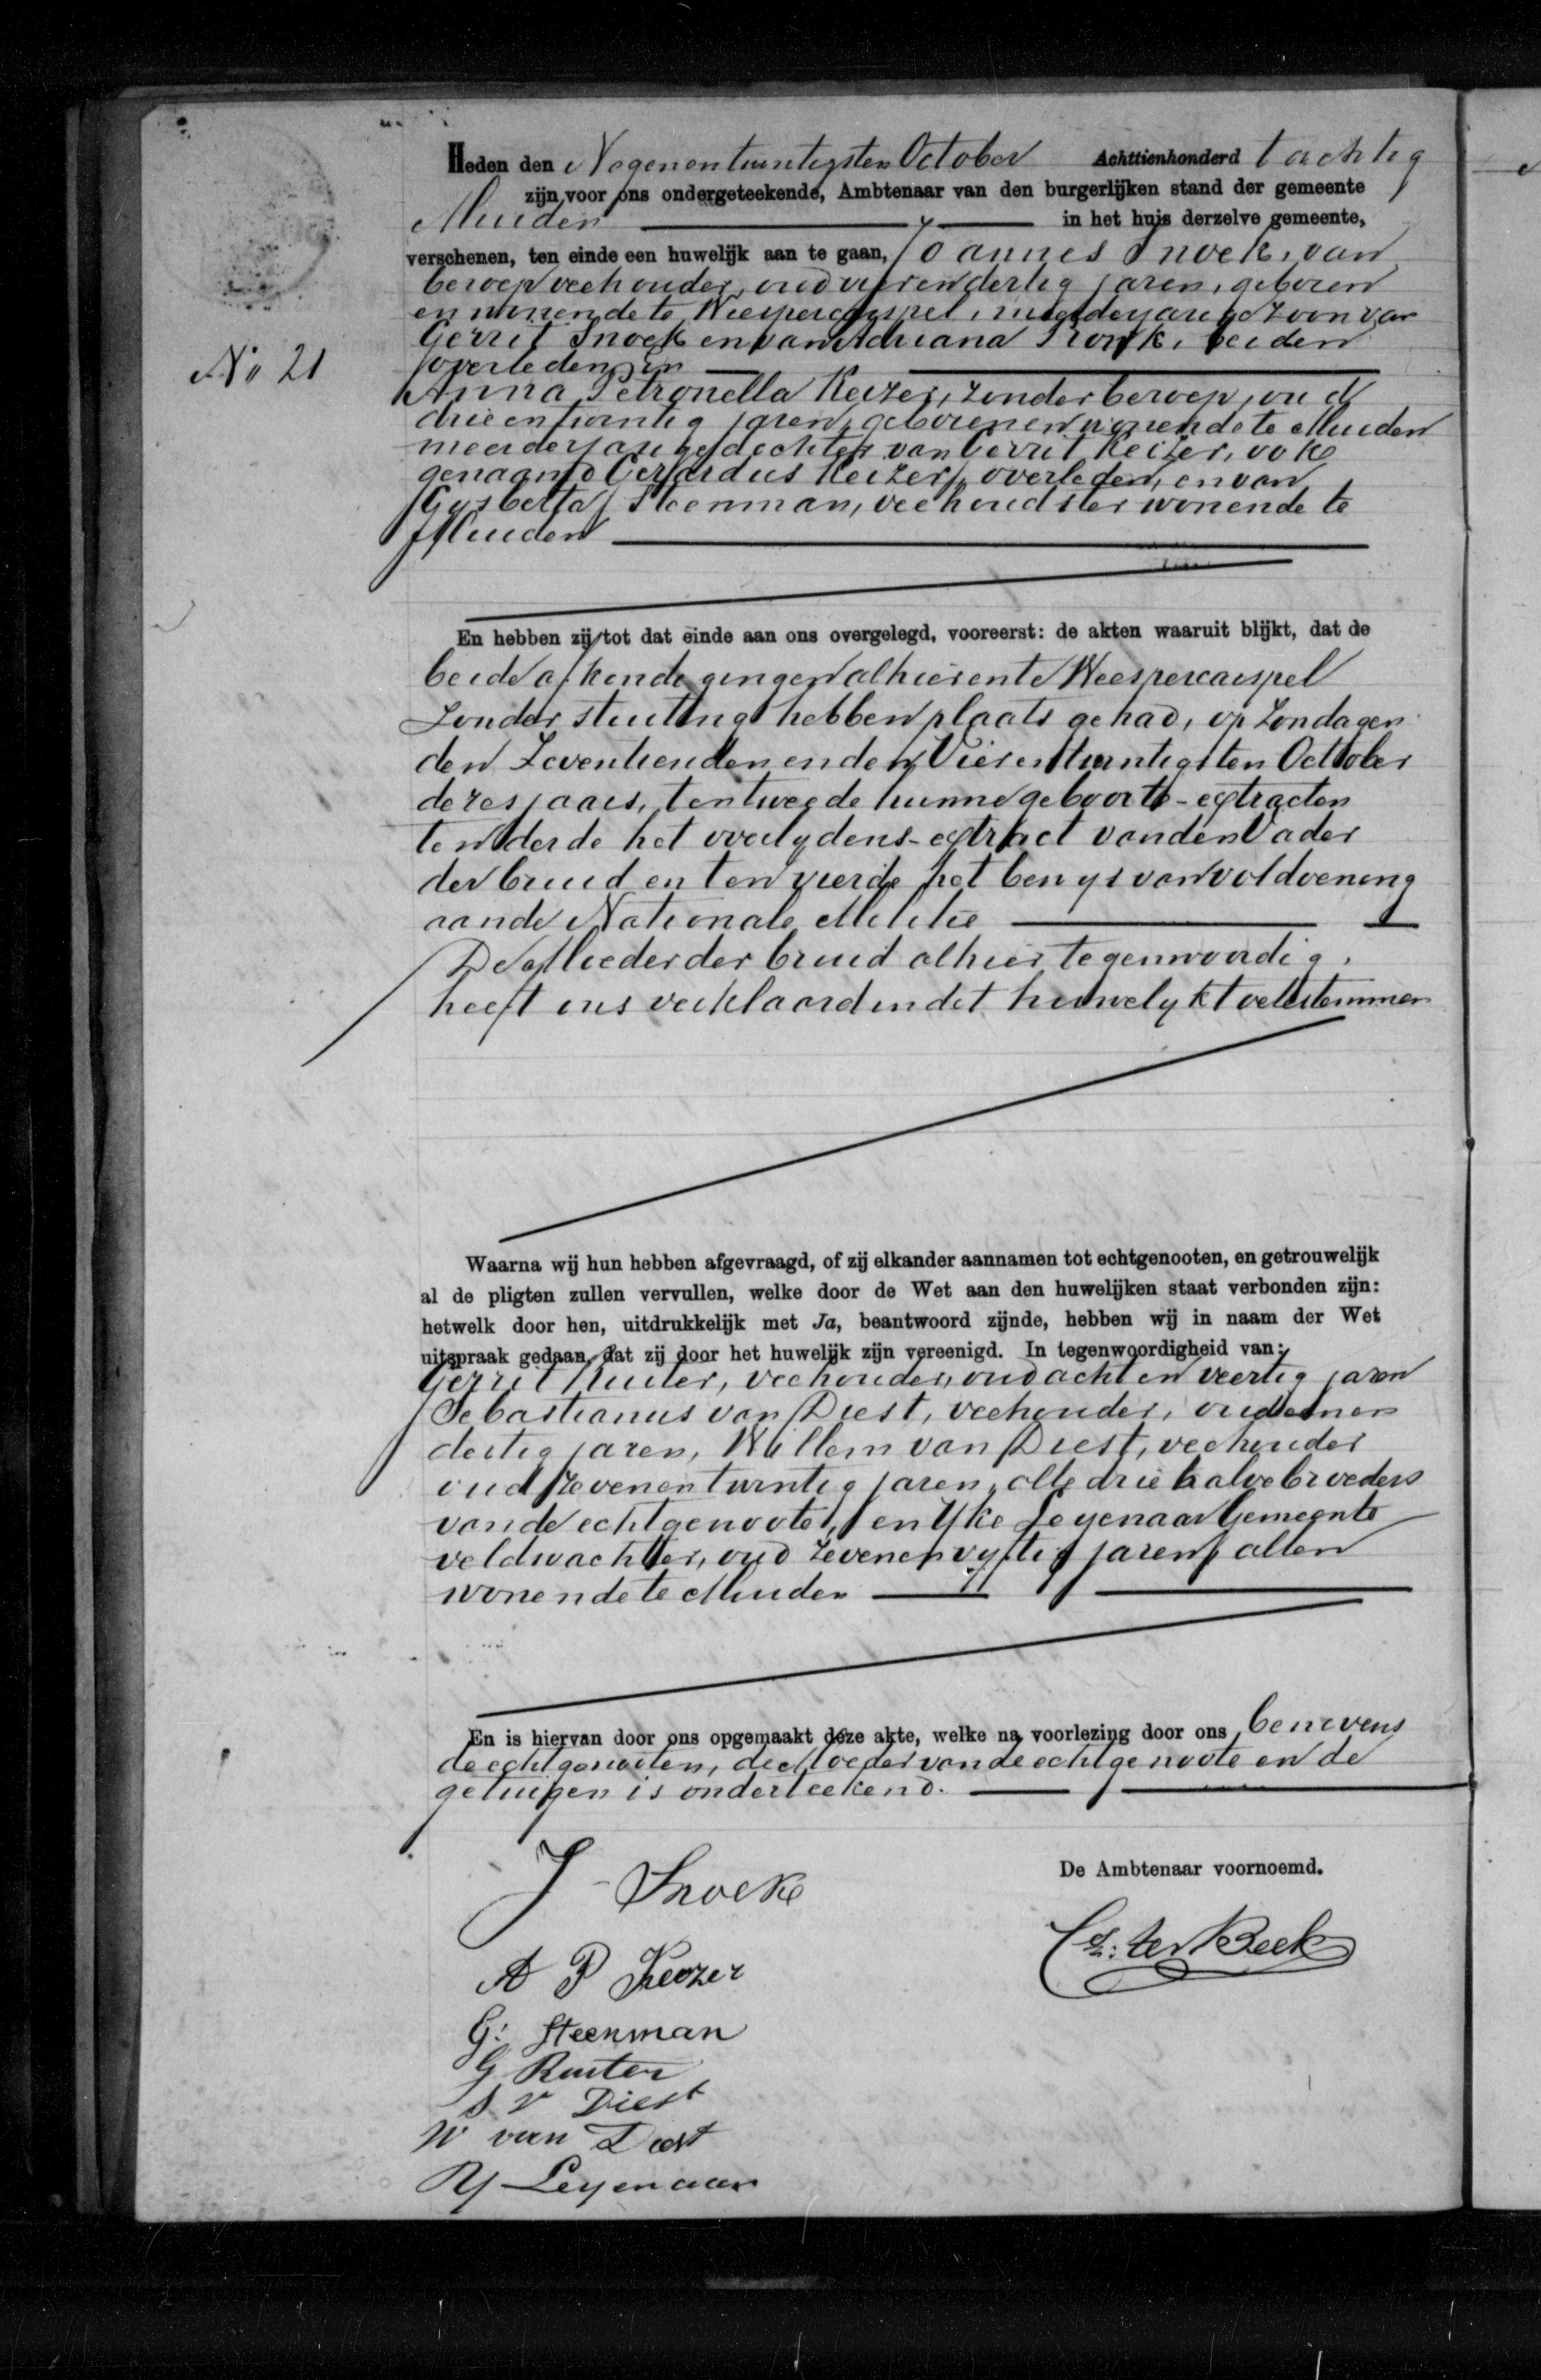 Heden den Negenentwintigsten October Achttienhonderd tachtig
zijn voor ons ondergeteekende, Ambtenaar van den burgerlijken stand der gemeente
Muiden in het huis derzelve gemeente,
verschenen, ten einde een huwelijk aan te gaan, Joannes Snoek, van
beroep veehouder, oud vierendertig jaren, geboren
en wonende te Weespercarspel, meerderjarige Zoon van
Gerrit Snoek en van Adriana Pronk, beiden
overleden, en
No 21
Anna Petronella Keizer, zonder beroep, oud
drieentwintig jaren, geboren en wonende te Muiden
meerderjarige dochter van Gerrit Keizer, ook
genaamd Gerardus Keizer, overleden, en van
Gysberta Steenman, veehoudster wonende te
Muiden
En hebben zij tot dat einde aan ons overgelegd, vooreerst: de akten waaruit blijkt, dat de
beide afkondigingen alhier en te Weespercarspel
zonder stuiting hebben plaats gehad, op Zondagen
den Zeventienden en den Vierentwintigsten October
dezes jaars, ten tweede hunne geboorte-extracten
ten derde het overlydens-extract van den Vader
der bruid en ten vierde het bewys van voldoening
aan de Nationale Militie
De Moeder der bruid alhier tegenwoordig,
heeft ons verklaard in dit huwelyk toetestemmen
Waarna wij hun hebben afgevraagd, of zij elkander aannamen tot echtgenooten, en getrouwelijk
al de pligten zullen vervullen, welke door de Wet aan den huwelijken staat verbonden zijn:
hetwelk door hen, uitdrukkelijk met Ja, beantwoord zijnde, hebben wij in naam der Wet
uitspraak gedaan, dat zij door het huwelijk zijn vereenigd. In tegenwoordigheid van:
Gerrit Ruiter, veehouder, oud acht en veertig jaren
Sebastianus van Diest, veehouder, oud eenen
dertig jaren, Willem van Diest, veehouder
oud zevenentwintig jaren, alle drie halve broeders
van de echtgenoote, en Yke Leyenaar Gemeente
veldwachter, oud zevenenvyftig jaren, allen
wonende te Muiden
En is hiervan door ons opgemaakt deze akte, welke na voorlezing door ons benevens
de echtgenooten, de Moeder van de echtgenoote en de
getuigen is onderteekend.
De Ambtenaar voornoemd.
J Snoek
A P Keizer
G: Steenman
G Ruiter
S v Diest
W van Diest
Y Leyenaar